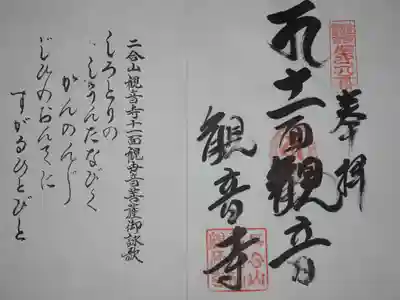 奉拝
十一面観音
観音寺
二合山観音寺十一面観世音菩薩御詠歌
しろとりの
しうんたなびく
かんのんじ
じひのおんてに
すがるひとびと